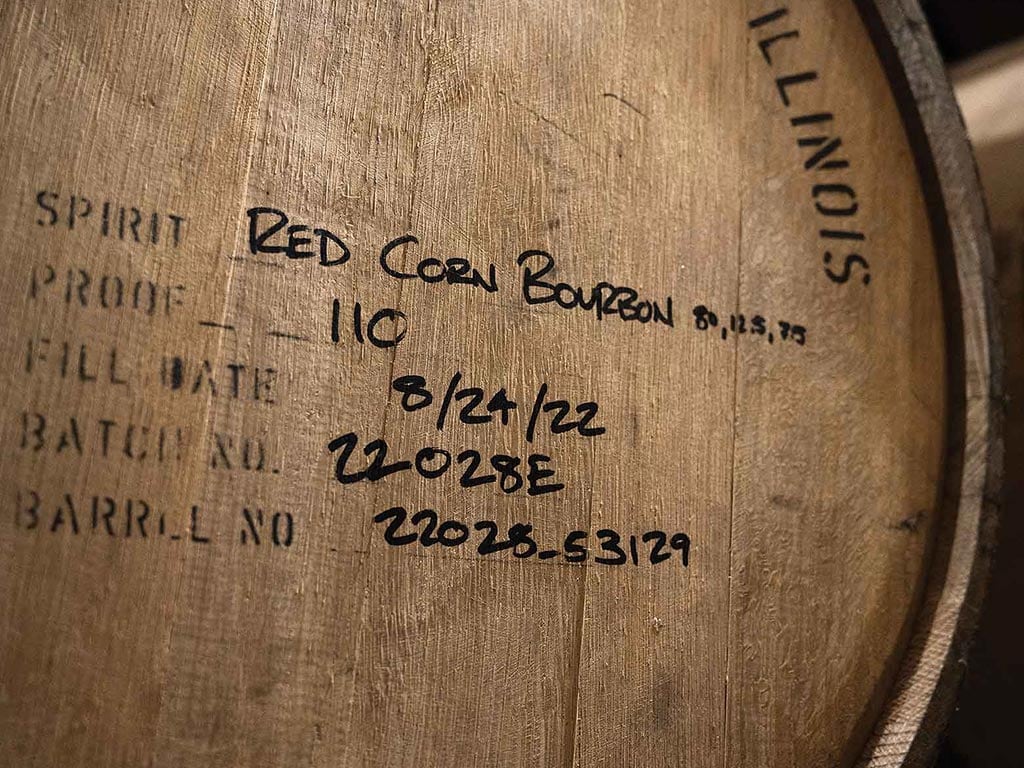 ILLINOIS
SPIRIT RED CORN BOURBON 80, 12.5, 7.5
PROOF 110
FILL DATE 8/24/22
BATCH NO. 22028E
BARREL NO 22028-53129